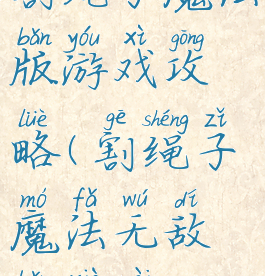 bǎn yóu xì gōng
版游戏攻
lüè gē shéng zǐ
略(割绳子
mó fǎ wú dí
魔法无敌